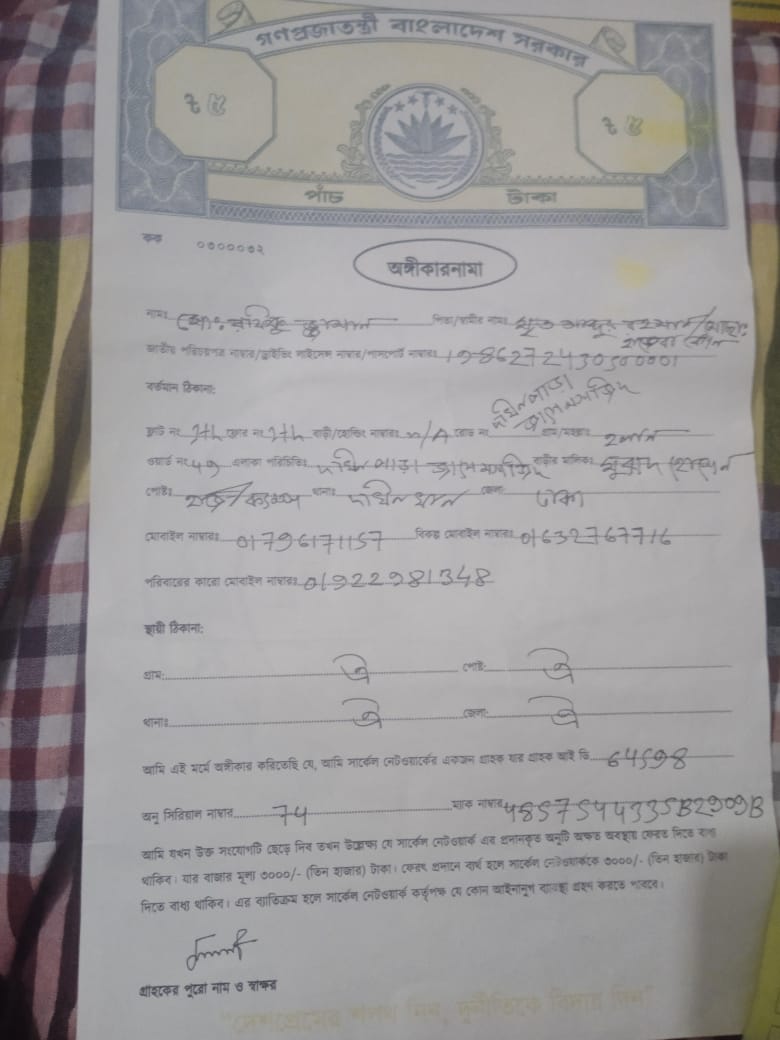 গণপ্রজাতন্ত্রী বাংলাদেশ সরকার
৳ ৫ ৳ ৫
পাঁচ টাকা
কক ০০০০০০২
অঙ্গীকারনামা
নামঃ মোঃ পিতা/স্বামীর নামঃ মৃত আব্দুর রহমান/মোছাঃ
জাতীয় পরিচয়পত্র নাম্বার/ড্রাইভিং লাইসেন্স নাম্বার/পাসপোর্ট নাম্বারঃ 19862724305000001
বর্তমান ঠিকানা:
ফ্লাট নং 7th ফ্লোর নং 7th বাড়ী/হোল্ডিং নাম্বারঃ N/A রোড নং দক্ষিনপাড়া জামে মসজিদ গ্রাম/মহল্লাঃ
ওয়ার্ড নং 49 এলাকা পরিচিতিঃ দক্ষিন পাড়া জামে মসজিদ বাড়ীর মালিকঃ হোসেন
পোষ্টঃ থানাঃ দক্ষিনখান জেলাঃ ঢাকা
মোবাইল নাম্বারঃ 01796171157 বিকল্প মোবাইল নাম্বারঃ 01632767716
পরিবারের কারো মোবাইল নাম্বারঃ 01922981348
স্থায়ী ঠিকানা:
গ্রাম: ঐ পোষ্ট: ঐ
থানাঃ ঐ জেলা: ঐ
আমি এই মর্মে অঙ্গীকার করিতেছি যে, আমি সার্কেল নেটওয়ার্কের একজন গ্রাহক যার গ্রাহক আই ডি 64598
অনু সিরিয়াল নাম্বার 74 ম্যাক নাম্বার 4857544335B2909B
আমি যখন উক্ত সংযোগটি ছেড়ে দিব তখন উল্লেক্ষ্য যে সার্কেল নেটওয়ার্ক এর প্রদানকৃত অনুটি অক্ষত অবস্থায় ফেরত দিতে বাধ্য
থাকিব। যার বাজার মূল্য ৩০০০/- (তিন হাজার) টাকা। ফেরৎ প্রদানে ব্যর্থ হলে সার্কেল নেটওয়ার্ককে ৩০০০/- (তিন হাজার) টাকা
দিতে বাধ্য থাকিব। এর ব্যতিক্রম হলে সার্কেল নেটওয়ার্ক কর্তৃপক্ষ যে কোন আইনানুগ ব্যবস্থা গ্রহন করতে পারবে।
গ্রাহকের পুরো নাম ও স্বাক্ষর
"দেশপ্রেমের শপথ নিন, দুর্নীতিকে বিদায় দিন"